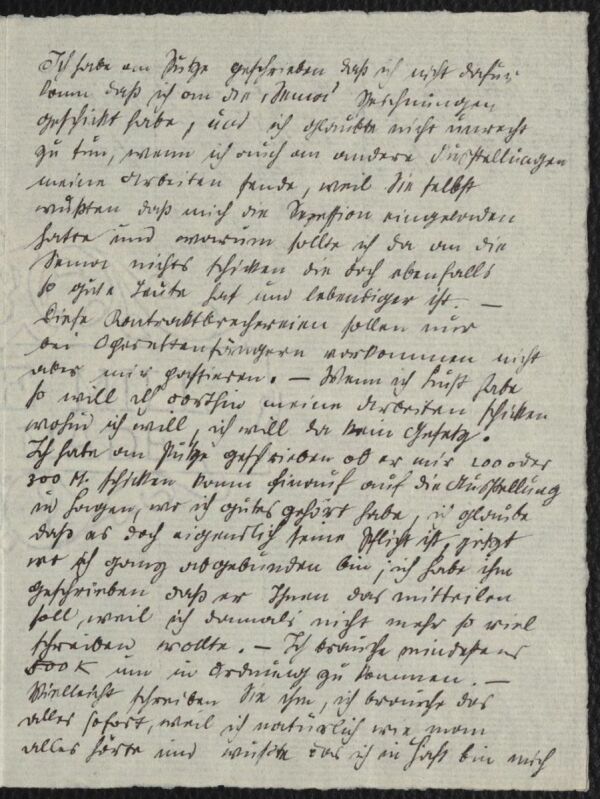 Ich habe an Pütze geschrieben daß ich nicht dafür
kann daß ich an die „Sema“ Zeichnungen
geschickt habe, und ich glaubte nicht unrecht
zu tun, wenn ich auch an andere Ausstellungen
meine Arbeiten sende, weil Sie selbst
wußten daß mich die Sezession eingeladen
hatte und warum sollte ich da an die
Sema nichts schicken die doch ebenfalls
so gute Leute hat und lebendiger ist. —
Diese Kontraktbrechereien sollen nur
bei Operettensängern vorkommen nicht
aber mir passieren. — Wenn ich Lust habe
so will ich dorthin meine Arbeiten schicken
wohin ich will, ich will da kein Gesetz.
Ich habe an Pütze geschrieben ob er mir 200 oder
300 M. schicken kann hinauf auf die Ausstellung
in Hagen, wo ich gutes gehört habe, ich glaube
daß es doch eigentlich seine Pflicht ist, jetzt
wo ich ganz abgebunden bin; ich habe ihm
geschrieben daß er Ihnen das mitteilen
soll, weil ich damals nicht mehr so viel
schreiben wollte. — Ich brauche mindestens
500 K um in Ordnung zu kommen. —
Vielleicht schreiben Sie ihm, ich brauche das
alles sofort, weil ich natürlich wie man
alles hörte und wußte das ich in Haft bin mich